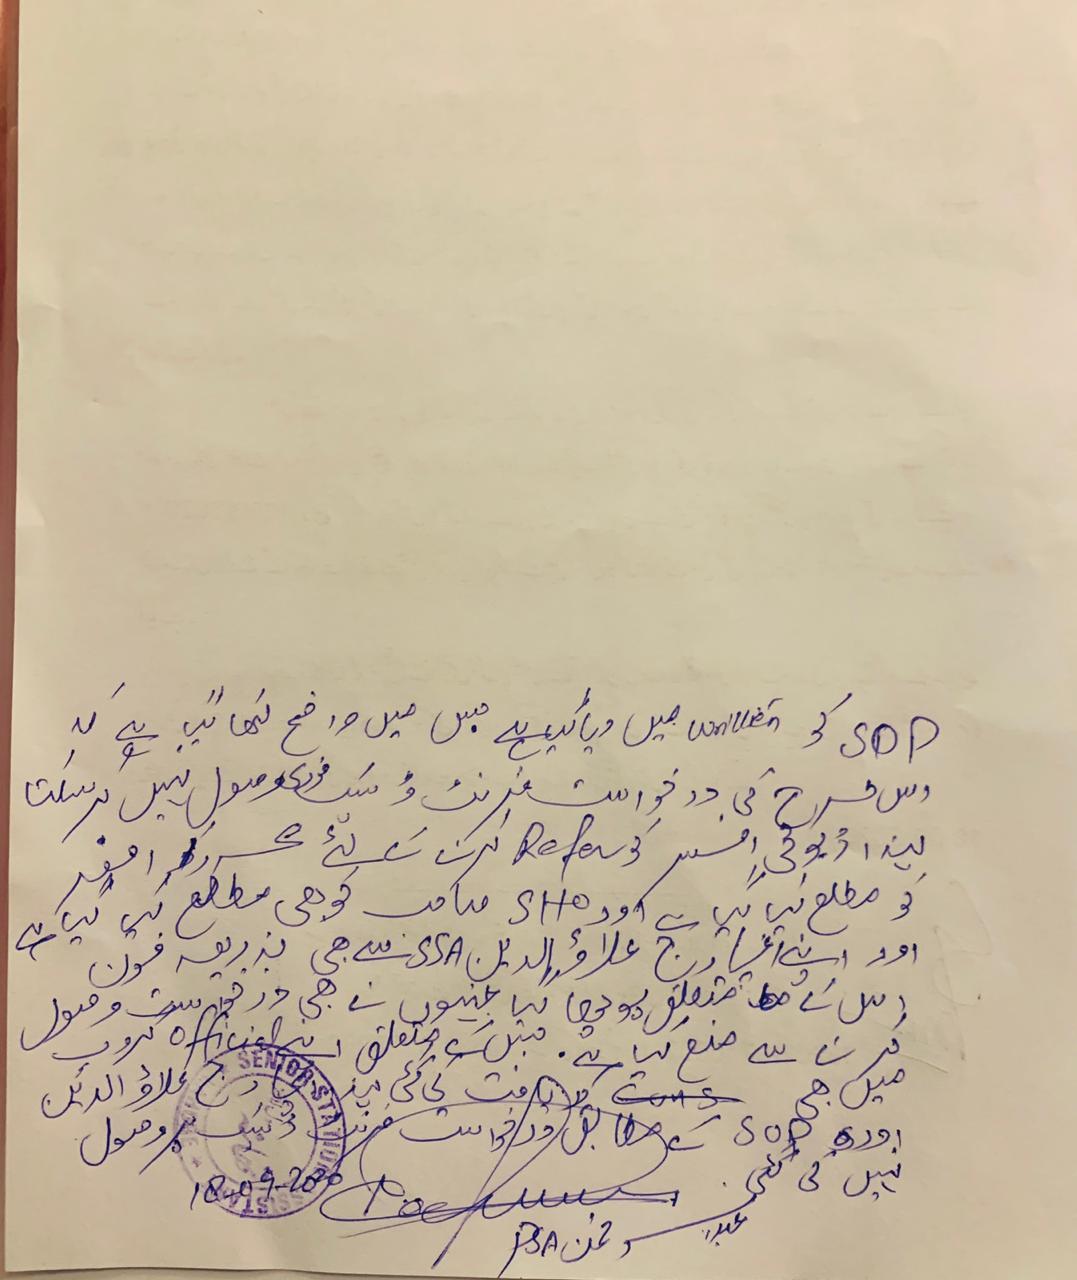 SOP کو written میں دیا گیا ہے جس میں واضح لکھا گیا ہے کہ
اس طرح کی درخواست فرنٹ ڈسک فوری وصول نہیں کر سکتا
لہذا ڈیوٹی افسر کو Refer کرنے کے لئے محرر
کو مطلع کیا گیا ہے اور SHO صاحب کو بھی مطلع کیا گیا ہے
اور اپنے انچارج علاؤالدین SSA سے بھی بذریعہ فون
اس کے متعلق پوچھا گیا جنہوں نے بھی درخواست وصول
کرنے سے منع کیا ہے۔ جس کے متعلق اپنے Official گروپ
میں بھی دریافت کی گئی علاؤالدین
اور SOP کے مطابق درخواست فرنٹ ڈسک پر وصول
نہیں کی گئی۔
SENIOR STATION ASSISTANT
18-09-2020
PSA